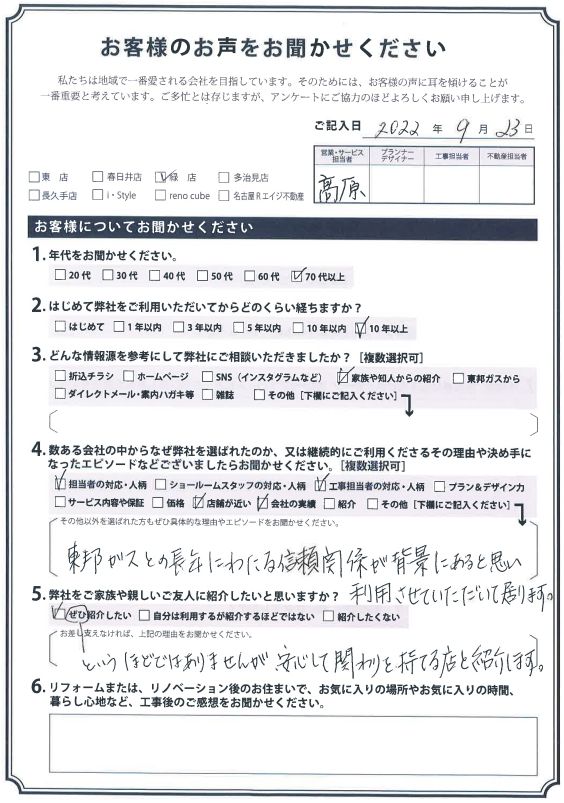 お客様のお声をお聞かせください
私たちは地域で一番愛される会社を目指しています。そのためには、お客様の声に耳を傾けることが
一番重要と考えています。ご多忙とは存じますが、アンケートにご協力のほどよろしくお願い申し上げます。
ご記入日 2022 年 9 月 23 日
営業・サービス担当者 プランナーデザイナー 工事担当者 不動産担当者
高原
□東 店 □春日井店 ☑緑 店 □多治見店
□長久手店 □i・Style □reno cube □名古屋Rエイジ不動産
お客様についてお聞かせください
1. 年代をお聞かせください。
□20代 □30代 □40代 □50代 □60代 ☑70代以上
2. はじめて弊社をご利用いただいてからどのくらい経ちますか？
□はじめて □1年以内 □3年以内 □5年以内 □10年以内 ☑10年以上
3. どんな情報源を参考にして弊社にご相談いただきましたか？［複数選択可］
□折込チラシ □ホームページ □SNS（インスタグラムなど） ☑家族や知人からの紹介 □東邦ガスから
□ダイレクトメール・案内ハガキ等 □雑誌 □その他［下欄にご記入ください］
4. 数ある会社の中からなぜ弊社を選ばれたのか、又は継続的にご利用くださるその理由や決め手に
なったエピソードなどございましたらお聞かせください。［複数選択可］
☑担当者の対応・人柄 □ショールームスタッフの対応・人柄 ☑工事担当者の対応・人柄 □プラン＆デザイン力
□サービス内容や保証 □価格 ☑店舗が近い ☑会社の実績 □紹介 □その他［下欄にご記入ください］
その他以外を選ばれた方もぜひ具体的な理由やエピソードをお聞かせください。
東邦ガスとの長年にわたる信頼関係が背景にあると思い
利用させていただいて居ります。
5. 弊社をご家族や親しいご友人に紹介したいと思いますか？
☑ぜひ紹介したい □自分は利用するが紹介するほどではない □紹介したくない
お差し支えなければ、上記の理由をお聞かせください。
というほどではありませんが 安心して関わりを持てる店と紹介します。
6. リフォームまたは、リノベーション後のお住まいで、お気に入りの場所やお気に入りの時間、
暮らし心地など、工事後のご感想をお聞かせください。